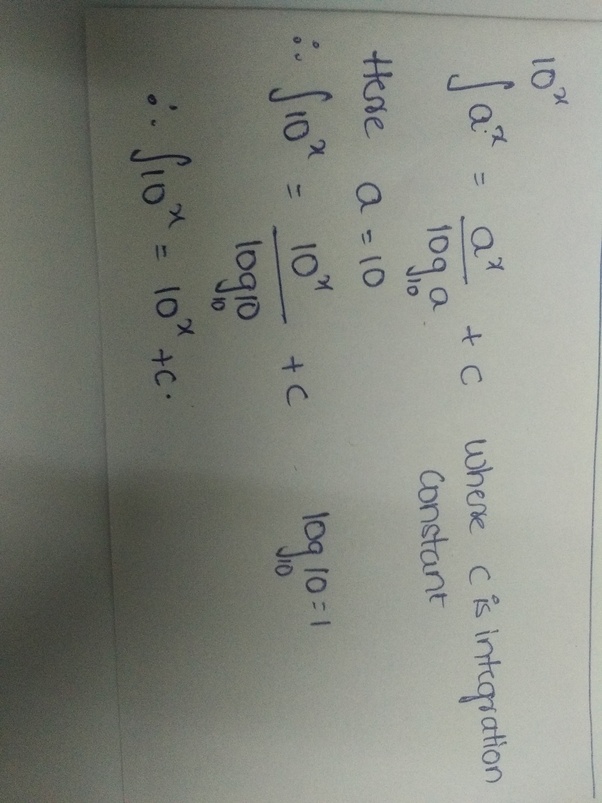 10^x
∫a^x = a^x / log_10 a + c where c is integration
constant
Here a = 10
∴ ∫10^x = 10^x / log_10 10 + c log_10 10 = 1
∴ ∫10^x = 10^x + c.